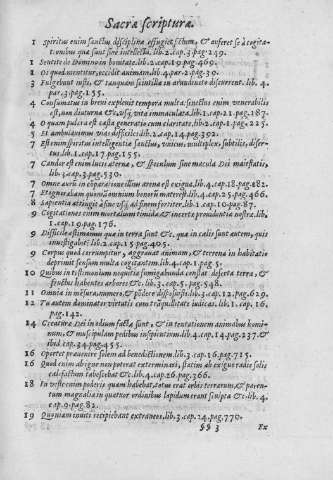 Sacræ scripturæ.
1 Spiritus enim sanctus disciplinæ effugiet fictum, & auferet se à cogita-
tionibus quæ sunt sine intellectu. lib.2.cap.3.pag.249.
1 Sentite de Domino in bonitate. lib.2.cap.19.pag.469.
1 Os quod mentitur, occidit animam. lib.4.par.2.pag.30.
3 Fulgebunt iusti, & tanquam scintillæ in arundineto discurrent. lib. 4.
par.3.pag.155.
4 Consumatus in brevi explevit tempora multa: senectus enim venerabilis
est, non diuturna &c. usq; vita immaculata. lib.1.cap.21.pag.187.
4 O quam pulcra est casta generatio cum claritate. lib.2.cap.1.pag.225.
5 Et ambulavimus vias difficiles. lib.2.cap.14.pag.392.
7 Est enim spiritus intelligentiæ sanctus, unicus, multiplex, subtilis, disertus. lib.1.cap.17.pag.155.
7 Candor est enim lucis æternæ, & speculum sine macula Dei maiestatis,
lib.3.cap.3.pag.530.
7 Omne aurum in comparatione illius arena est exigua. lib.4.cap.18.pag.282.
7 Et ignorabam quoniam omnium bonorum mater est. lib.4.cap.25.pag.466.
8 Sapientia attingit à fine usq; ad finem fortiter. lib.1.cap.10.pag.87.
9 Cogitationes enim mortalium timidæ & incertæ providentiæ nostræ. lib.
1.cap.19.pag.176.
9 Difficile æstimamus quæ in terra sunt &c. quæ in cælis sunt autem, quis
investigabit? lib.2.cap.15.pag.405.
9 Corpus quod corrumpitur, aggravat animam, & terrena inhabitatio
deprimit sensum multa cogitantem. lib.4.cap.1.pag.5.
10 Quibus in testimonium nequitiæ fumigabunda constat deserta terra, &
fructus habentes arbores &c. lib.3.cap.5.pag.548.
11 Omnia in mensura, numero, & pondere disposuisti. lib.3.cap.12.pag.629.
12 Tu autem dominator virtutis cum tranquillitate iudicas. lib.1.cap.16.
pag.142.
14 Creaturæ Dei in odium factæ sunt, & in tentationem animabus homi-
num, & muscipulam pedibus insipientium. lib.4.cap.14.pag.237. &
ibid.cap.34.pag.455.
16 Oportet prævenire solem ad benedictionem. lib.3.cap.16.pag.715.
16 Quod enim ab igne non poterat exterminari, statim ab exiguo radio solis
calefactum tabescebat &c. lib.4.cap.26.pag.366.
18 In veste enim poderis quam habebat, totus erat orbis terrarum, & paren-
tum magnalia in quatuor ordinibus lapidum erant sculpta &c. lib.4.
cap.9.pag.82.
19 Quoniam inviti recipiebant extraneos. lib.3.cap.24.pag.770.
§§ 3 Ex